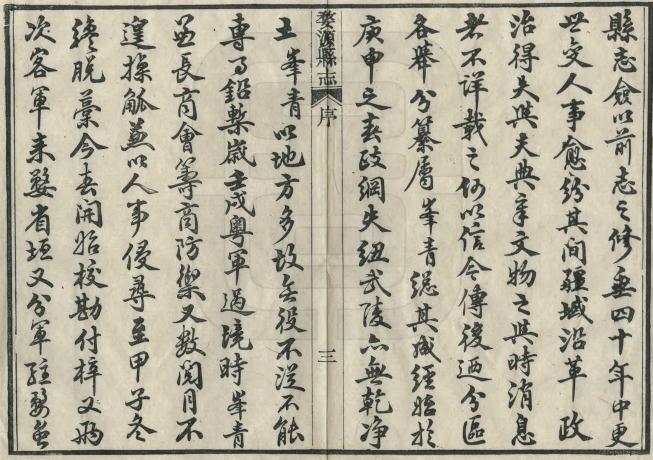 縣志僉以前志之修垂四十年中更
世变人事愈紛其間疆域沿革政
治得失與夫典章文物之與時消息
者不詳載之何以信今傳後迺分區
各舉分纂屬峯青總其成經始於
庚申之春政綱失紐武陵亦無乾净
婺源縣志
序
三
土峯青以地方多故無役不從不能
專事鉛槧歲壬戌粵軍過境時峯青
長商會籌商防禦又數閱月不
遑操觚兼以人事侵尋至甲子冬
終脫藁今春開始校勘付梓又兩
次客軍来婺省垣又分軍駐婺